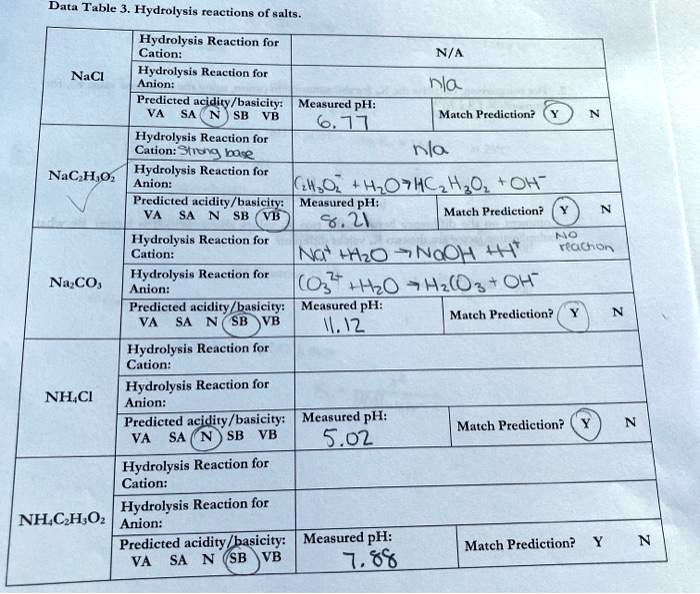 Data Table 3. Hydrolysis reactions of salts.
NaCl
Hydrolysis Reaction for
Cation:
N/A
Hydrolysis Reaction for
Anion:
n/a
Predicted acidity/basicity:
VA SA N SB VB
Measured pH:
6.77
Match Prediction? Y N
NaC₂H₃O₂
Hydrolysis Reaction for
Cation: Strong base
n/a
Hydrolysis Reaction for
Anion:
C₂H₃O₂⁻ + H₂O → HC₂H₃O₂ + OH⁻
Predicted acidity/basicity:
VA SA N SB VB
Measured pH:
8.21
Match Prediction? Y N
Na₂CO₃
Hydrolysis Reaction for
Cation:
Na⁺ + H₂O → NaOH + H⁺
NO
reaction
Hydrolysis Reaction for
Anion:
CO₃²⁺ + H₂O → H₂CO₃ + OH⁻
Predicted acidity/basicity:
VA SA N SB VB
Measured pH:
11.12
Match Prediction? Y N
NH₄Cl
Hydrolysis Reaction for
Cation:
Hydrolysis Reaction for
Anion:
Predicted acidity/basicity:
VA SA N SB VB
Measured pH:
5.02
Match Prediction? Y N
NH₄C₂H₃O₂
Hydrolysis Reaction for
Cation:
Hydrolysis Reaction for
Anion:
Predicted acidity/basicity:
VA SA N SB VB
Measured pH:
7.88
Match Prediction? Y N